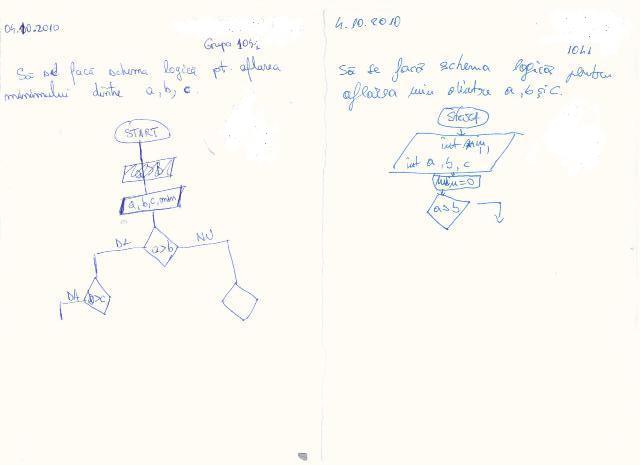 04.10.2010
Grupa 1041
Să se facă schema logică pt. aflarea
minimului dintre a, b, c.
START
a, b, c, min
a>b
DA
NU
b>c
DA
4.10.2010
1041
Să se facă schema logică pentru
aflarea min dintre a, b și c.
Start
int min,
int a, b, c
min=0
a>b